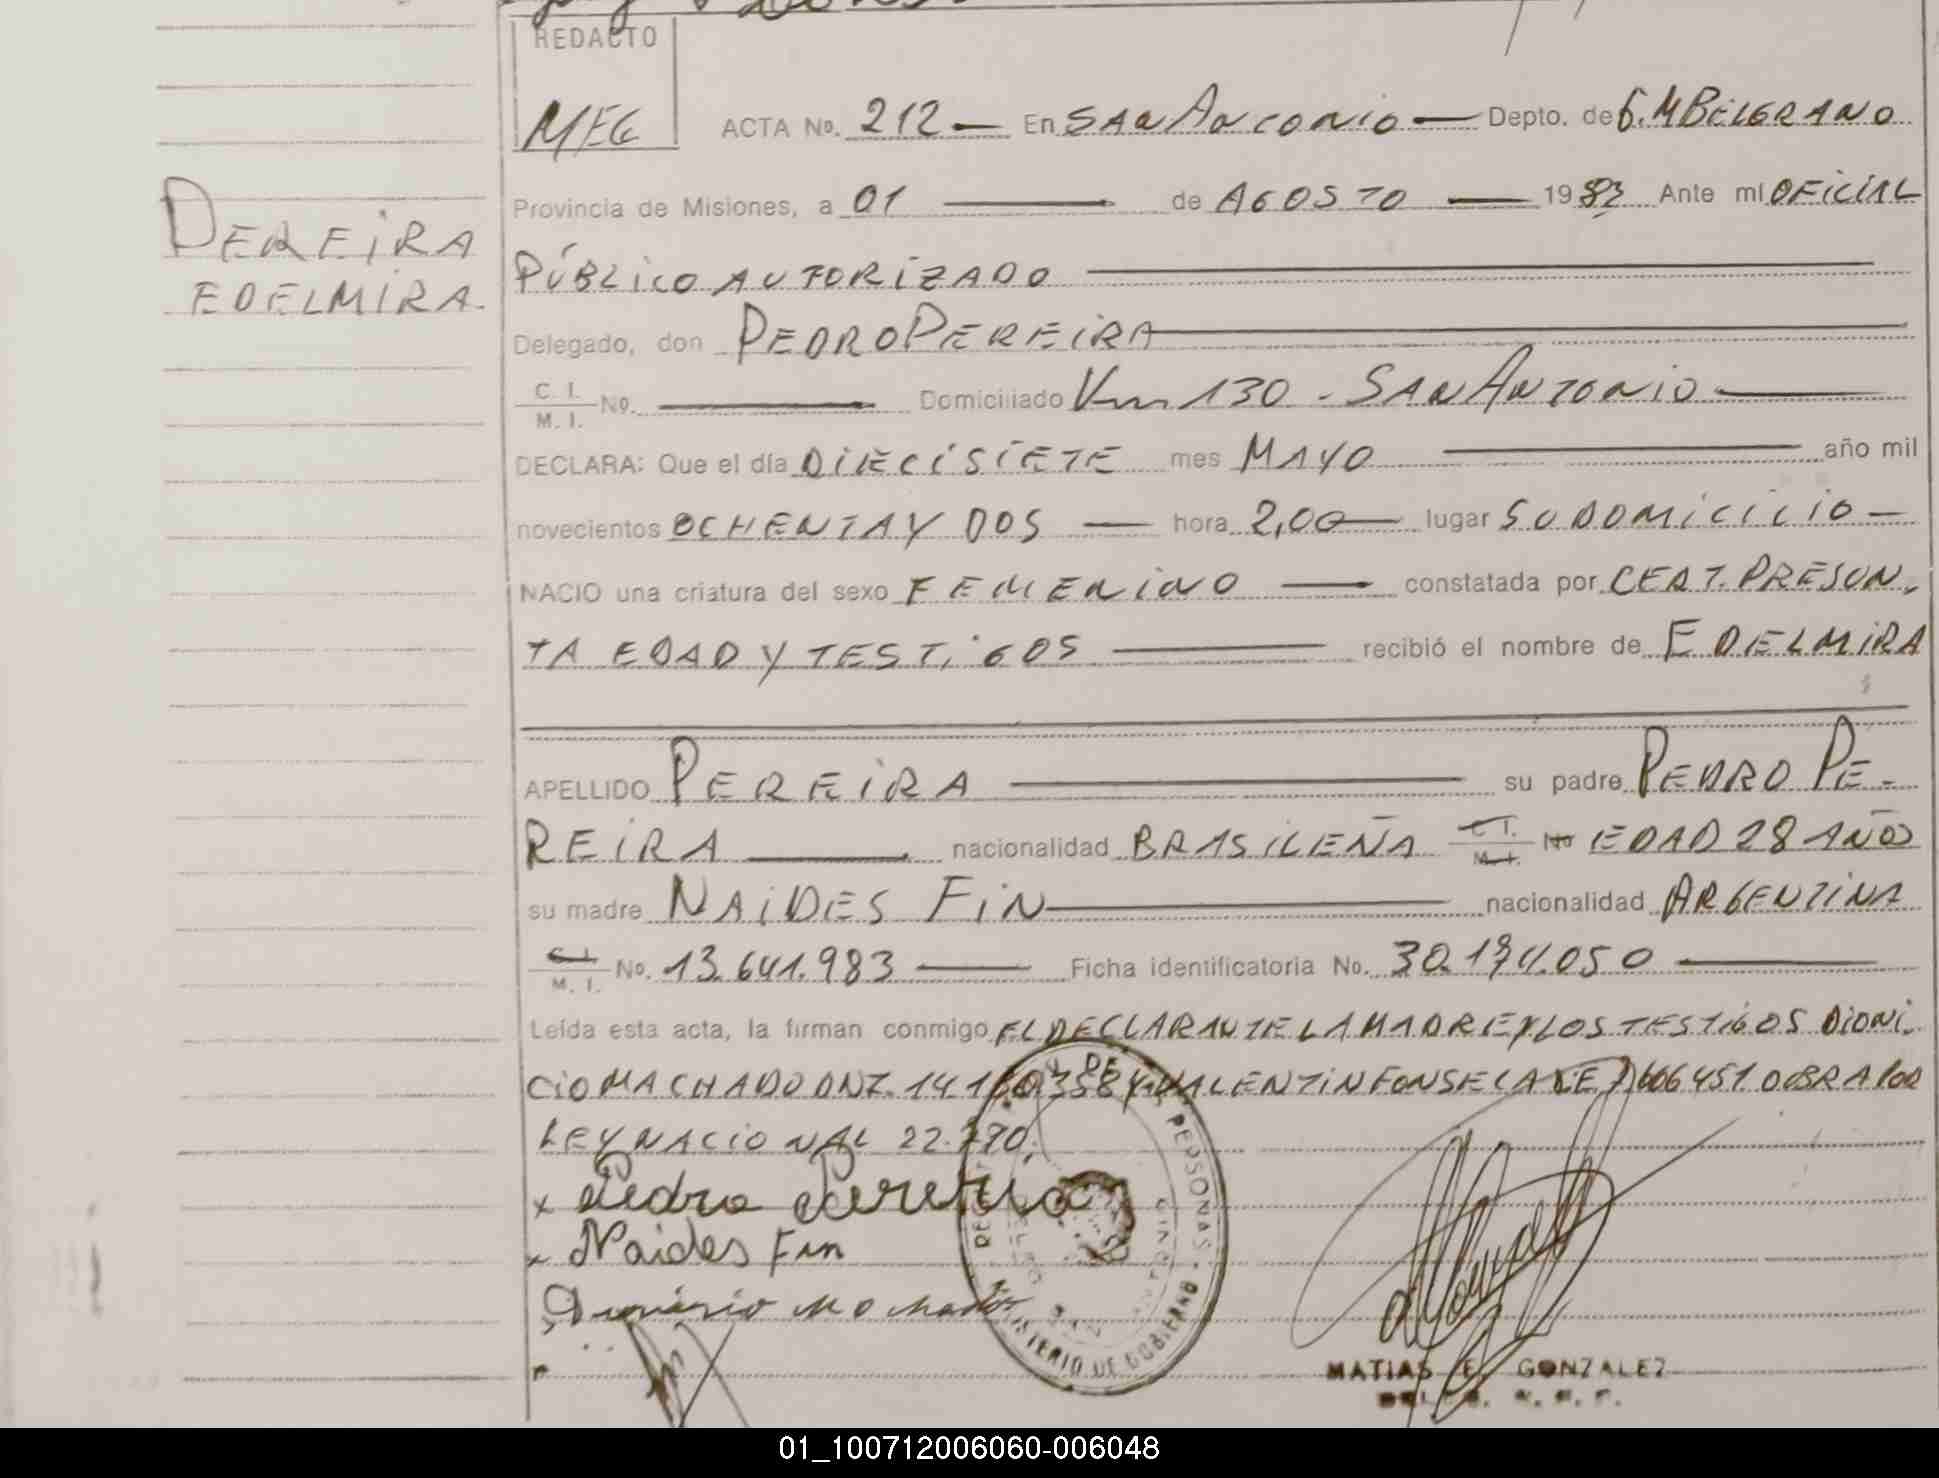 REDACTO
MEG
ACTA No. 212 — En SAN ANTONIO — Depto. de G. M BELGRANO
Provincia de Misiones, a 01 — de AGOSTO — 1983 Ante mí OFICIAL
PEREIRA
EDELMIRA.
PÚBLICO AUTORIZADO
Delegado, don PEDRO PEREIRA
C. I.
M. I. No. — Domiciliado Km 130 - SAN ANTONIO —
DECLARA: Que el día DIECISIETE mes MAYO — año mil
novecientos OCHENTA Y DOS — hora 2,00 — lugar SU DOMICILIO —
NACIO una criatura del sexo FEMENINO — constatada por CERT. PRESUN.
TA EDAD Y TESTIGOS — recibió el nombre de EDELMIRA
APELLIDO PEREIRA — su padre PEDRO PE-
REIRA — nacionalidad BRASILEÑA C. I. M. I. No EDAD 28 AÑOS
su madre NAIDES FIN — nacionalidad ARGENTINA
C. I.
M. I. No. 13.641.983 — Ficha identificatoria No. 30.174.050 —
Leída esta acta, la firman conmigo EL DECLARANTE LA MADRE Y LOS TESTIGOS DIONI.
CIO MACHADO DNI. 14.160.358 Y VALENTIN FONSECA LE 7606451. OBRA POR
LEY NACIONAL 22.770.
x Pedro Pereira
x Naides Fin
MINISTERIO DE GOBIERNO
PERSONAS
MATIAS E. GONZALEZ
01_100712006060-006048